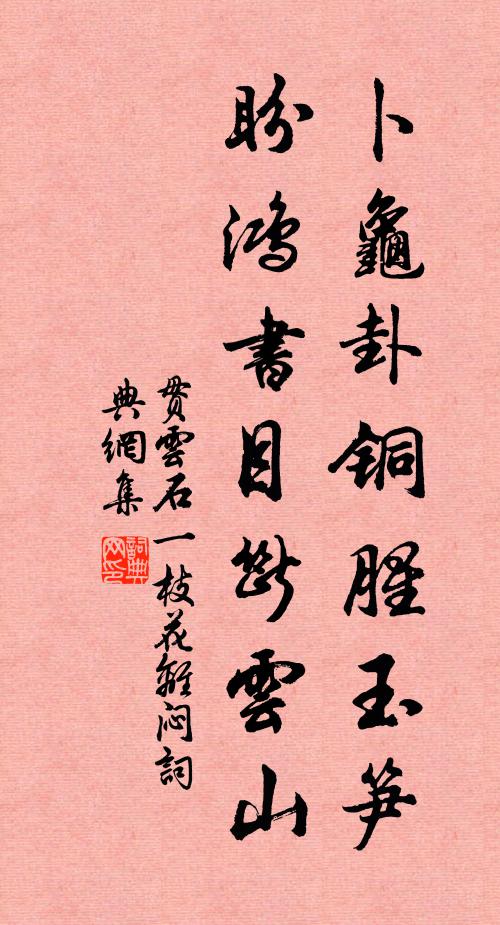 卜龜卦铜腥玉笋
盼鴻書目断雲山
貫雲石一枝花離闷詞
典網集
詞典
网印